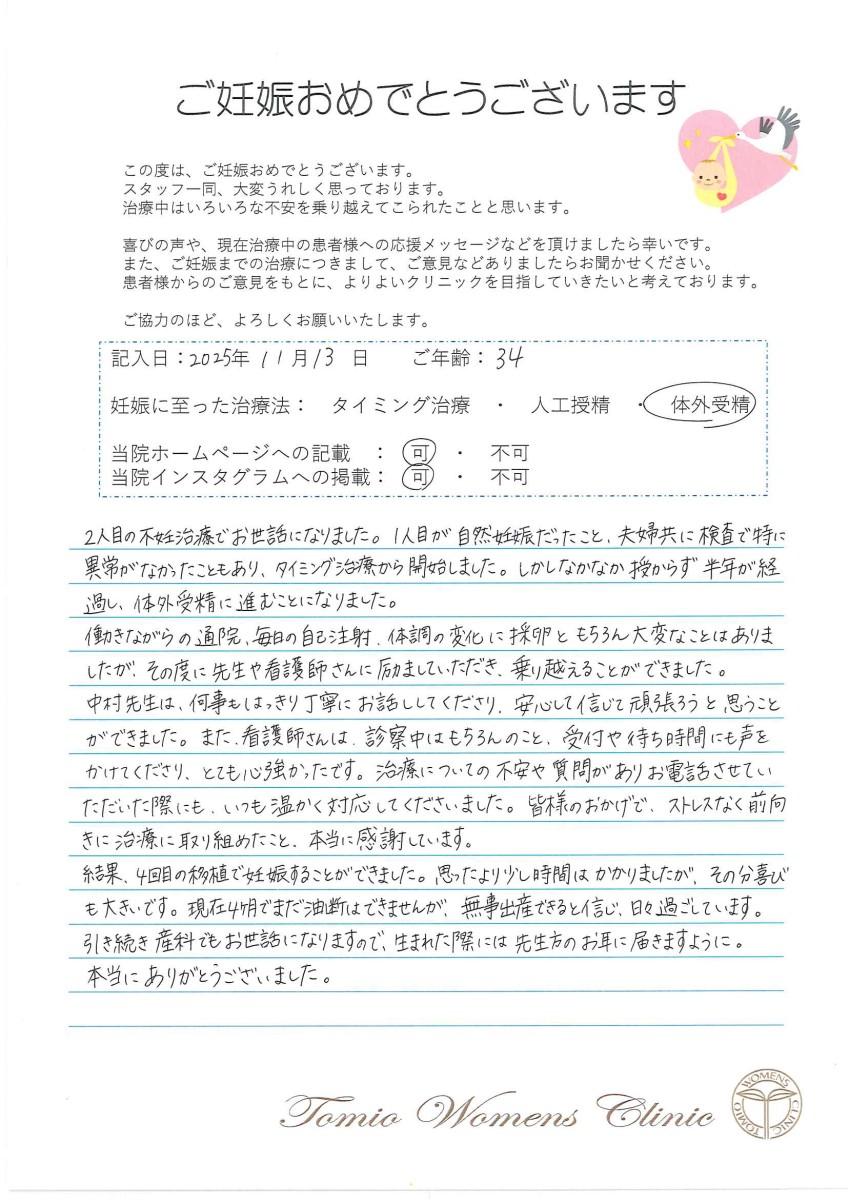 ご妊娠おめでとうございます
この度は、ご妊娠おめでとうございます。
スタッフ一同、大変うれしく思っております。
治療中はいろいろな不安を乗り越えてこられたことと思います。
喜びの声や、現在治療中の患者様への応援メッセージなどを頂けましたら幸いです。
また、ご妊娠までの治療につきまして、ご意見などありましたらお聞かせください。
患者様からのご意見をもとに、よりよいクリニックを目指していきたいと考えております。
ご協力のほど、よろしくお願いいたします。
記入日：2025年 11月13 日 ご年齢：34
妊娠に至った治療法： タイミング治療 ・ 人工授精 ・ 体外受精
当院ホームページへの記載 ： 可 ・ 不可
当院インスタグラムへの掲載： 可 ・ 不可
2人目の不妊治療でお世話になりました。1人目が自然妊娠だったこと、夫婦共に検査で特に
異常がなかったこともあり、タイミング治療から開始しました。しかしなかなか授からず半年が経
過し、体外受精に進むことになりました。
働きながらの通院、毎日の自己注射、体調の変化に採卵ともちろん大変なことはありま
したが、その度に先生や看護師さんに励ましていただき、乗り越えることができました。
中村先生は、何事もはっきり丁寧にお話ししてくださり、安心して信じて頑張ろうと思うこと
ができました。また、看護師さんは、診察中はもちろんのこと、受付や待ち時間にも声を
かけてくださり、とても心強かったです。治療についての不安や質問がありお電話させてい
ただいた際にも、いつも温かく対応してくださいました。皆様のおかげで、ストレスなく前向
きに治療に取り組めたこと、本当に感謝しています。
結果、4回目の移植で妊娠することができました。思ったより少し時間はかかりましたが、その分喜び
も大きいです。現在4ヶ月でまだ油断はできませんが、無事出産できると信じ、日々過ごしています。
引き続き産科でもお世話になりますので、生まれた際には先生方のお耳に届きますように。
本当にありがとうございました。
Tomio Womens Clinic
TOMIO WOMENS CLINIC